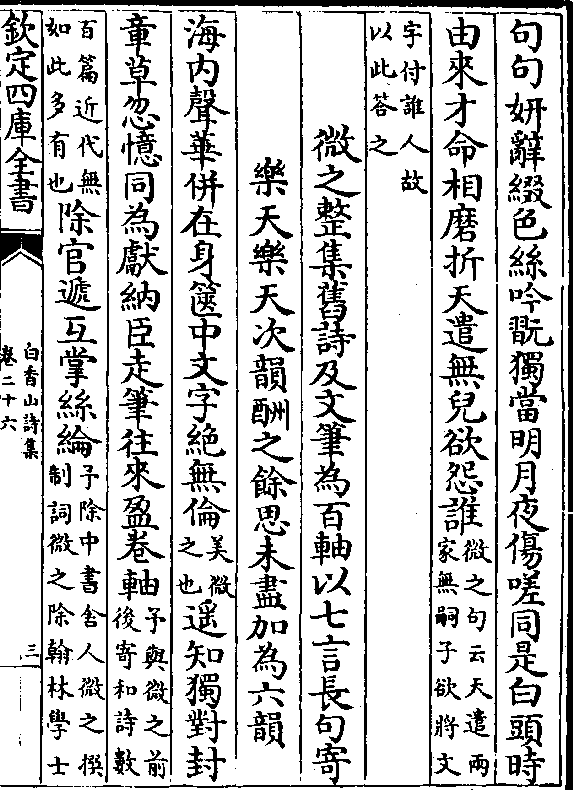 句句妍辭綴色絲吟翫獨當明月夜傷嗟同是白頭時
由來才命相磨折天遣無兒欲怨誰微之句云天遣兩家無嗣子欲將文
字付誰人故以此答之
微之整集舊詩及文筆為百軸以七言長句寄
樂天樂天次韻酬之餘思未盡加為六韻
海内聲華併在身篋中文字絶無倫美微之也遥知獨對封
章草忽憶同為獻納臣走筆往來盈卷軸予與微之前後寄和詩數
百篇近代無如此多有也除官遞互掌絲綸予除中書舍人微之撰制詞微之除翰林學士
欽定四庫全書
白香山詩集
卷二十六
三